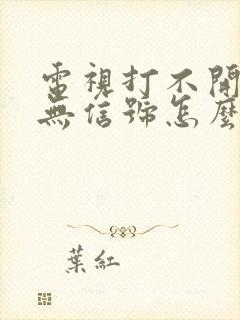 電視打不開
無信號怎麼
葉紅